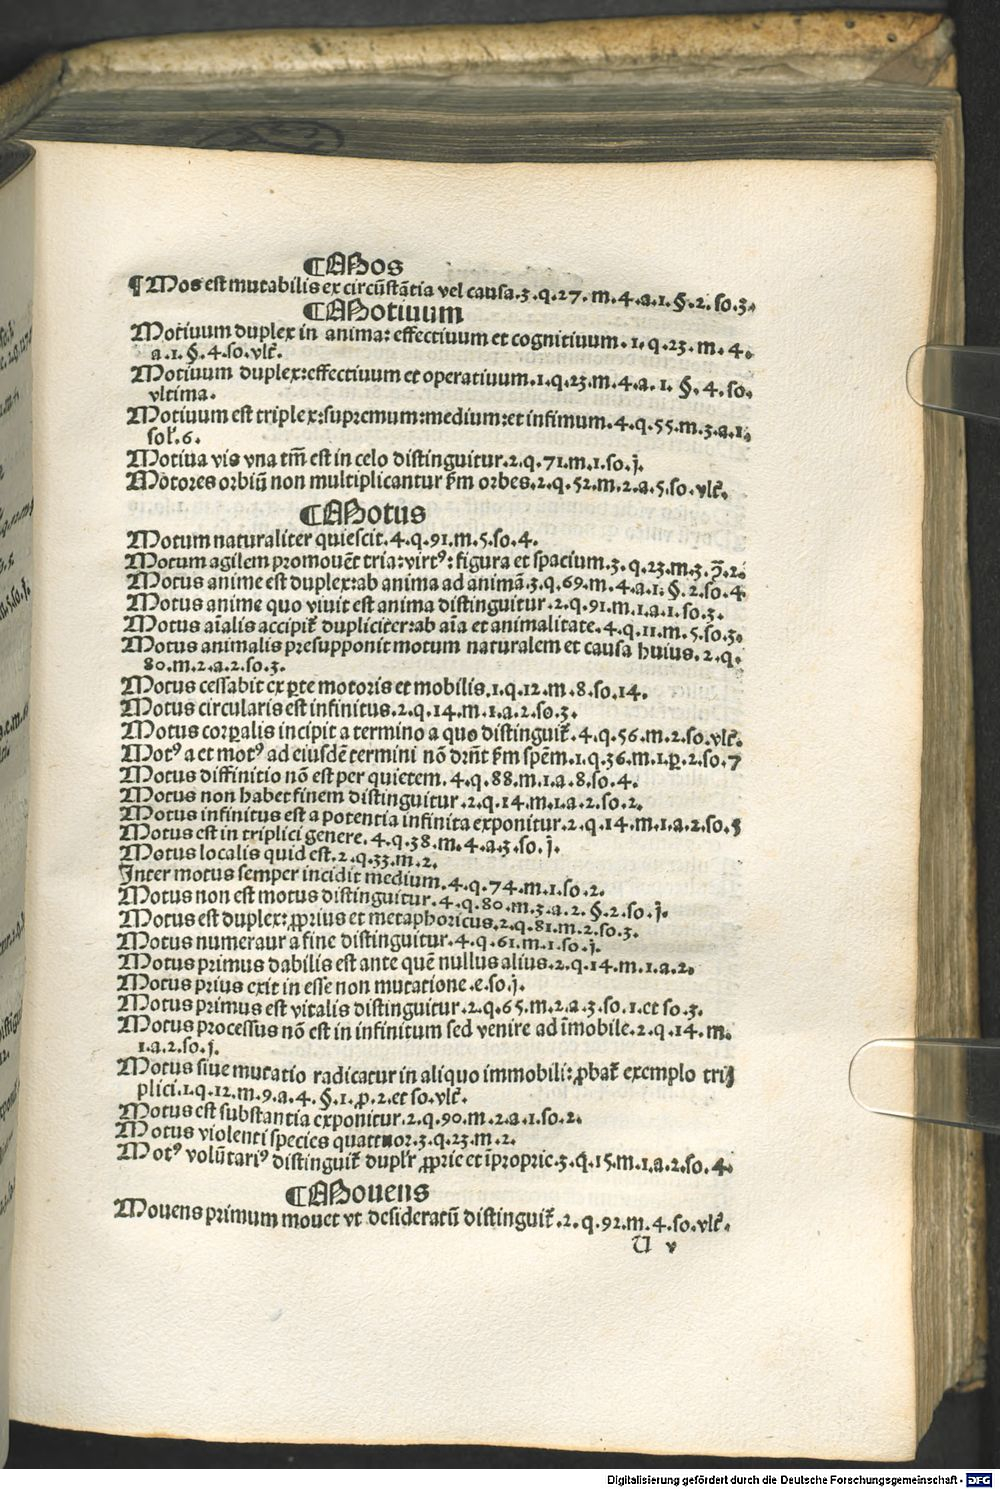 ¶Mos
¶ Mos est mutabilis ex circūstātia vel causa.3.q.27.m.4.a.1.§.2.so.3.
¶Motiuum
Motiuum duplex in anima: effectiuum et cognitiuum.1.q.23.m.4.
a.1.§.4.so.vlt̄.
Motiuum duplex:effectiuum et operatiuum.1.q.23.m.4.a.1.§.4.so.
vltima.
Motiuum est triplex:supremum:medium:et infimum.4.q.55.m.3.a.1.
sol̄.6.
Motiua vis vna tm̄ est in celo distinguitur.2.q.71.m.1.so.j.
Motores orbiū non multiplicantur ẜm orbes.2.q.52.m.2.a.5.so.vlt̄.
¶Motus
Motum naturaliter quiescit.4.q.91.m.5.so.4.
Motum agilem promouēt tria:virtꝰ:figura et spacium.3.q.23.m.3.p̄.2.
Motus anime est duplex:ab anima ad animā.3.q.69.m.4.a.1.§.2.so.4.
Motus anime quo viuit est anima distinguitur.2.q.91.m.1.a.1.so.3.
Motus aīalis accipit̄ dupliciter:ab aīa et animalitate.4.q.11.m.5.so.3.
Motus animalis presupponit motum naturalem et causa huius.2.q.
80.m.2.a.2.so.3.
Motus cessabit ex ꝑte motoris et mobilis.1.q.12.m.8.so.14.
Motus circularis est infinitus.2.q.14.m.1.a.2.so.3.
Motus corꝑalis incipit a termino a quo distinguit̄.4.q.56.m.2.so.vlt̄.
Motꝰ a et motꝰ ad eiusdē termini nō drn̄t ẜm spēm.1.q.36.m.1.p.2.so.7
Motus diffinitio nō est per quietem.4.q.88.m.1.a.8.so.4.
Motus non habet finem distinguitur.2.q.14.m.1.a.2.so.2.
Motus infinitus est a potentia infinita exponitur.2.q.14.m.1.a.2.so.5
Motus est in triplici genere.4.q.38.m.4.a.3.so.j.
Motus localis quid est.2.q.33.m.2.
Inter motus semper incidit medium.4.q.74.m.1.so.2.
Motus non est motus distinguitur.4.q.80.m.3.a.2.§.2.so.j.
Motus est duplex:ꝓprius et metaphoricus.2.q.81.m.2.so.3.
Motus numeraur a fine distinguitur.4.q.61.m.1.so.j.
Motus primus dabilis est ante quē nullus alius.2.q.14.m.1.a.2.
Motus prius exit in esse non mutatione.e.so.j.
Motus primus est vitalis distinguitur.2.q.65.m.2.a.3.so.1.et so.3.
Motus processus nō est in infinitum sed venire ad īmobile.2.q.14.m.
1.a.2.so.j.
Motus siue mutatio radicatur in aliquo immobili:ꝓbat̄ exemplo tri⸗
plici.1.q.12.m.9.a.4.§.1.p.2.et so.vlt̄.
Motus est substantia exponitur.2.q.90.m.2.a.1.so.2.
Motus violenti species quattuor.3.q.23.m.2.
Motꝰ volūtariꝰ distinguit̄ dupl̄r ꝓprie et īproprie.3.q.15.m.1.a.2.so.4.
¶Mouens
Mouens primum mouet vt desideratū distinguit̄.2.q.92.m.4.so.vlt̄.
U v
Digitalisierung gefördert durch die Deutsche Forschungsgemeinschaft - DFG